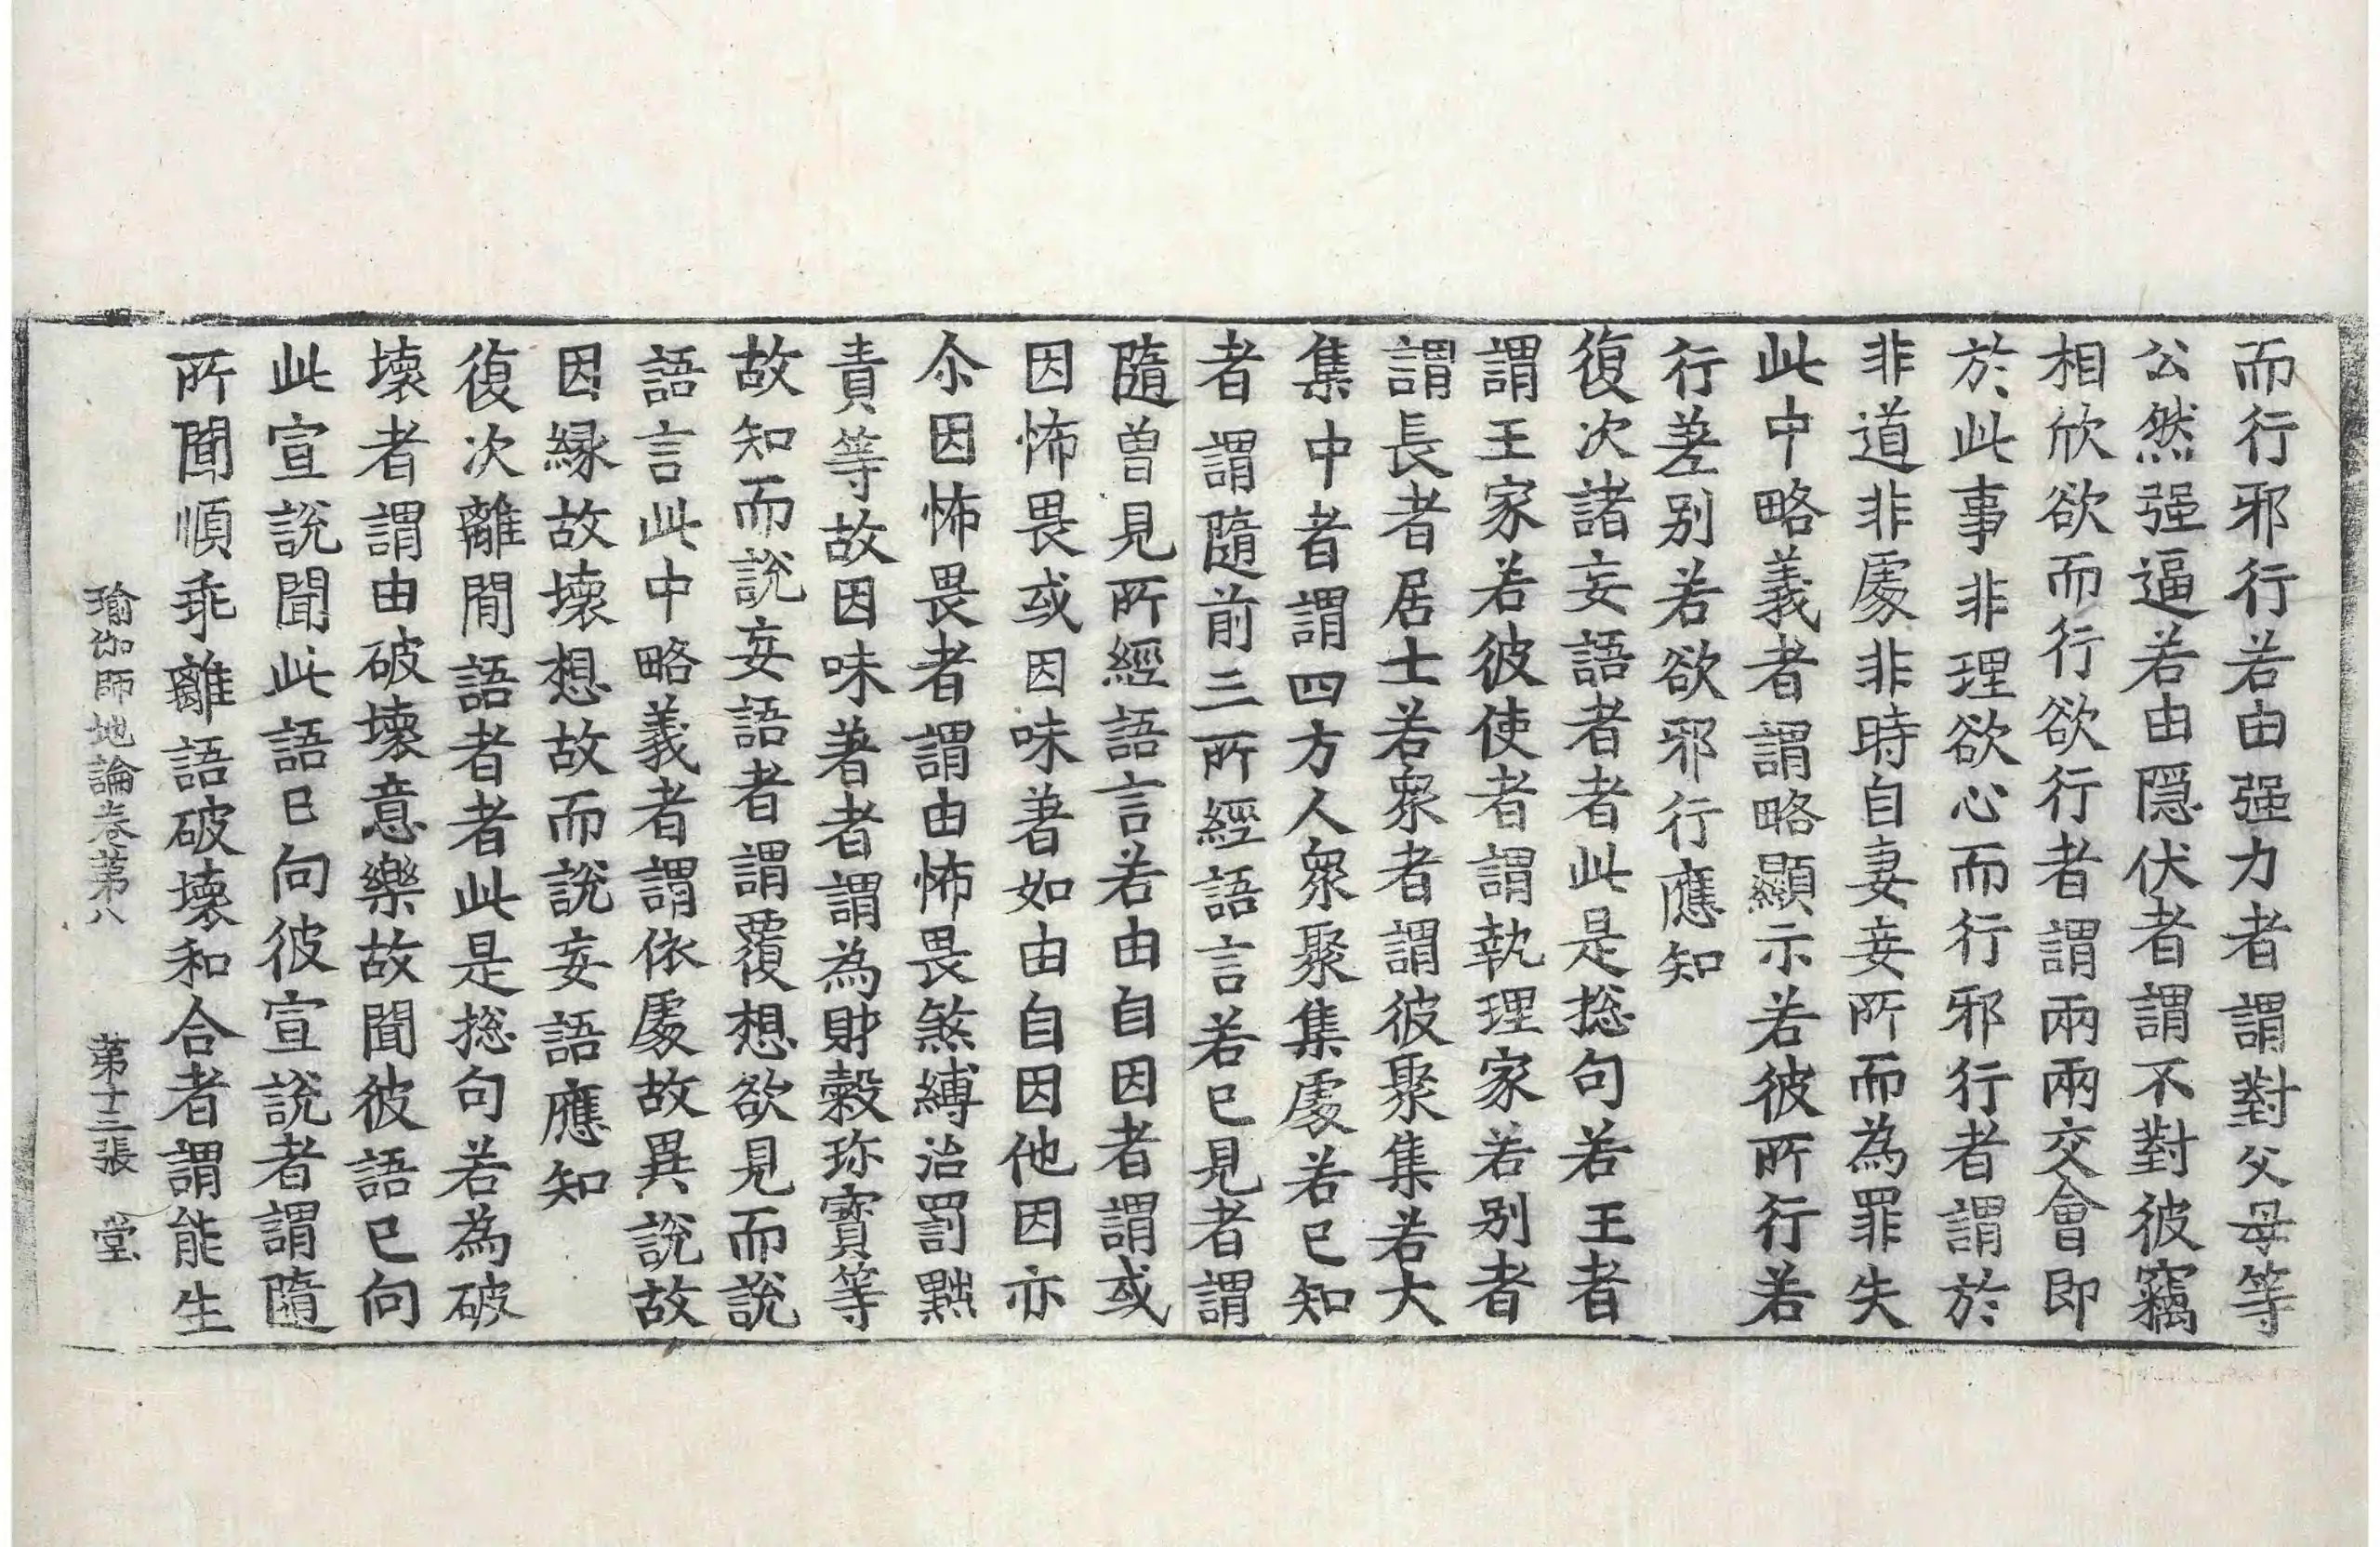 而行邪行若由强力者謂對父母等
公然强逼若由隱伏者謂不對彼竊
相欣欲而行欲行者謂兩兩交會即
於此事非理欲心而行邪行者謂於
非道非處非時自妻妾所而為罪失
此中略義者謂略顯示若彼所行若
行差別若欲邪行應知
復次諸妄語者者此是捴句若王者
謂王家若彼使者謂執理家若別者
謂長者居士若衆者謂彼聚集若大
集中者謂四方人衆聚集處若已知
者謂隨前三所經語言若已見者謂
隨曾見所經語言若由自因者謂或
因怖畏或因味著如由自因他因亦
尒因怖畏者謂由怖畏煞縛治罰黜
責等故因味著者謂為財穀珎寶等
故知而說妄語者謂覆想欲見而說
語言此中略義者謂依處故異說故
因緣故壞想故而說妄語應知
復次離間語者者此是捴句若為破
壞者謂由破壞意樂故聞彼語已向
此宣說聞此語已向彼宣說者謂隨
所聞順乖離語破壞和合者謂能生
瑜伽師地論卷第八 第十三張 堂